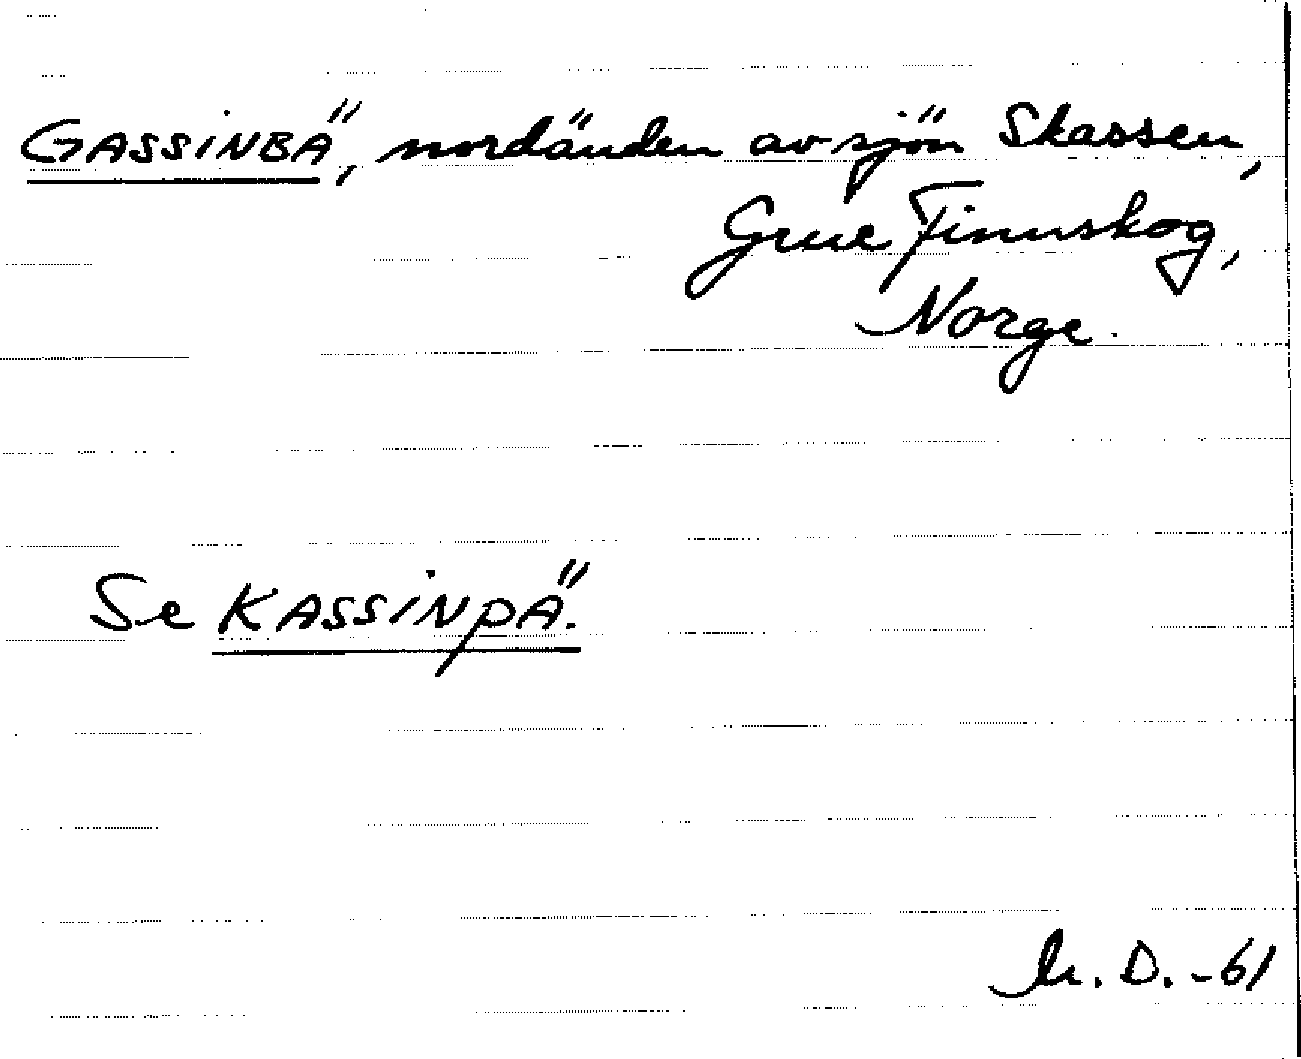 GASSINBÄ, nordänden av sjön Skassen,
Grue Finnskog,
Norge.
Se KASSINPÄ.
D. -61